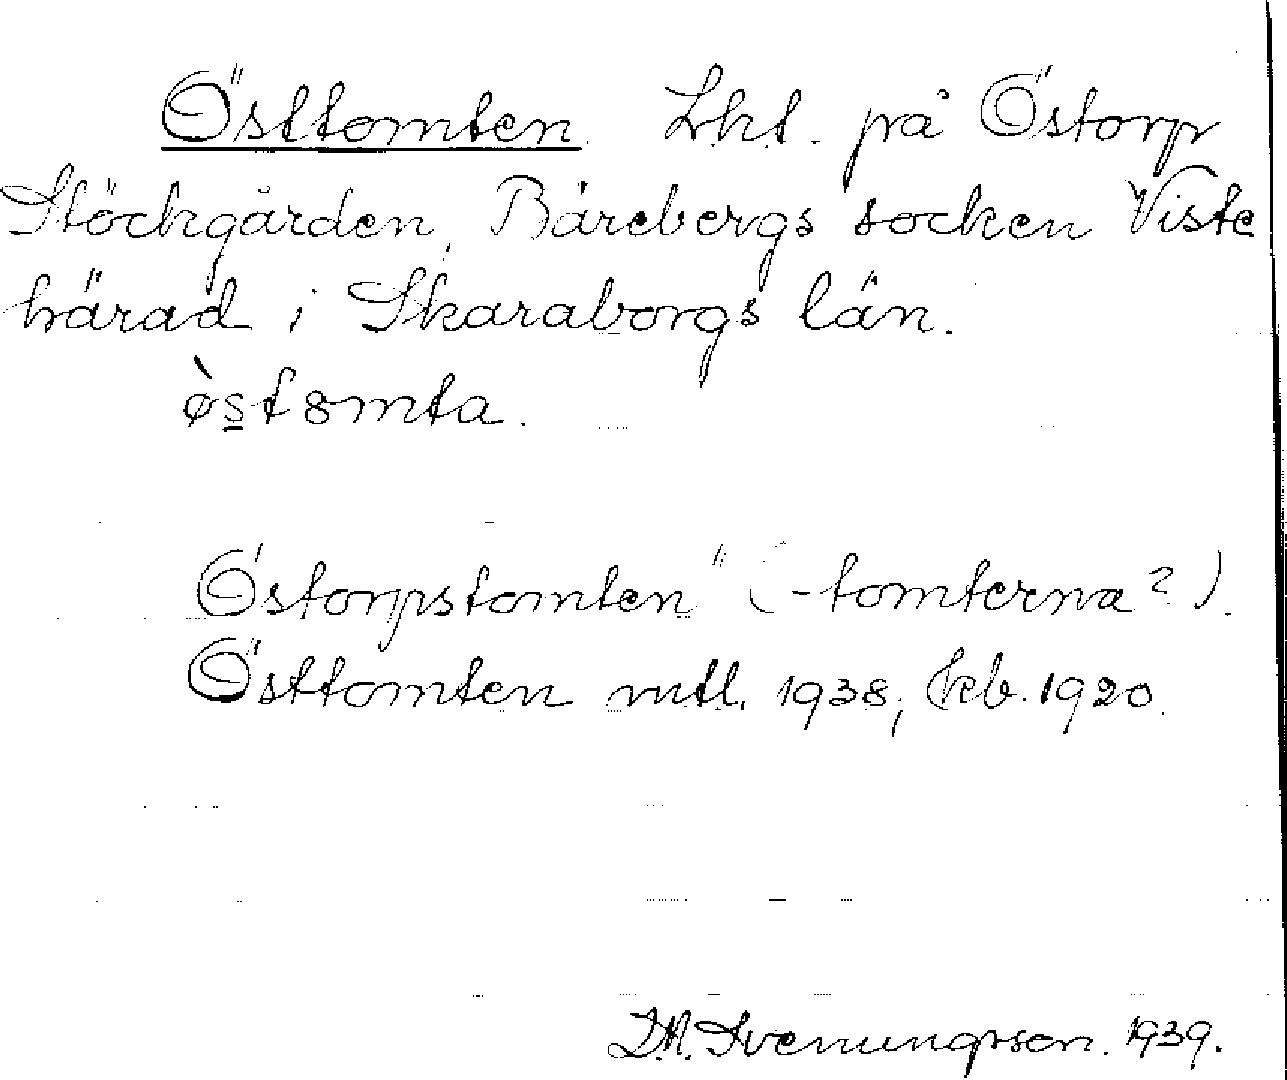 Östtomten. Lht. på Östorp
Stöckgården, Bärebergs socken Viste
härad i Skaraborgs län.
ø̀st8mta.
Östorpstomten" (-tomterna?).
Östtomten mtl. 1938, (kb. 1920.
D.A. Svenungsson. 1939.